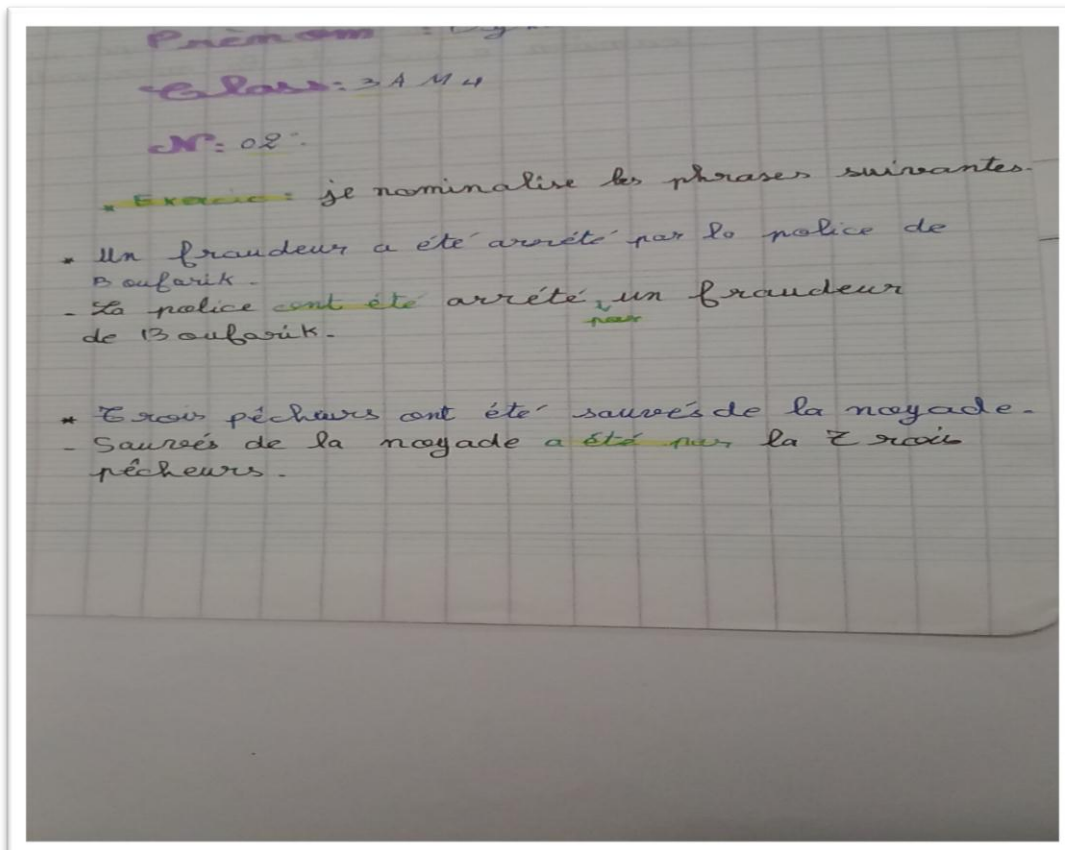 Prènom :
Class: 3 A M 4
N°: 02.
* Exercic: je nominalise les phrases suivantes.
* Un fraudeur a été arrété par la police de
Boufarik.
- La police ont été arrété un fraudeur
par
de Boufarik.
* Trois pécheurs ont été sauvés de la noyade.
- Sauvés de la noyade a été par la Trois
pêcheurs.